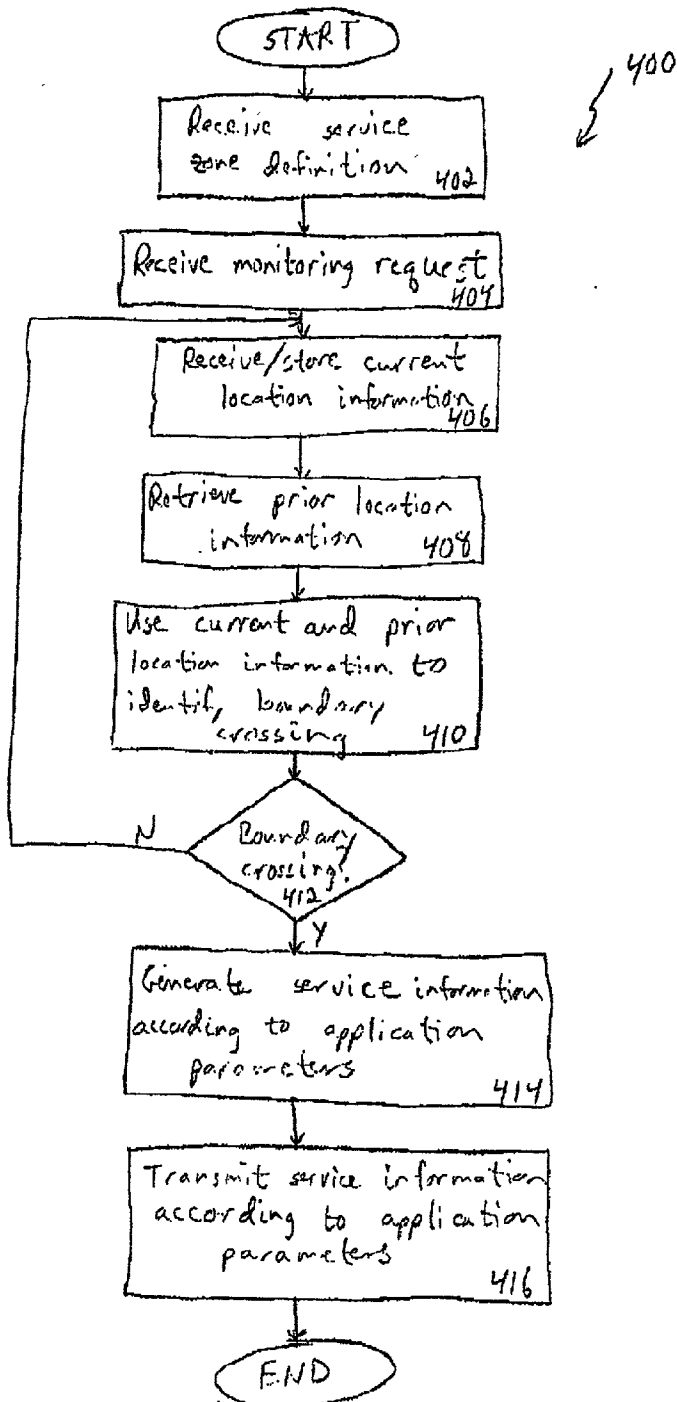 START
400
Receive service
zone definition
402
Receive monitoring request
404
Receive/store current
location information
406
Retrieve prior location
information 408
Use current and prior
location information to
identify boundary
crossing 410
N
Boundary
crossing?
412
Y
Generate service information
according to application
parameters
414
Transmit service information
according to application
parameters
416
END